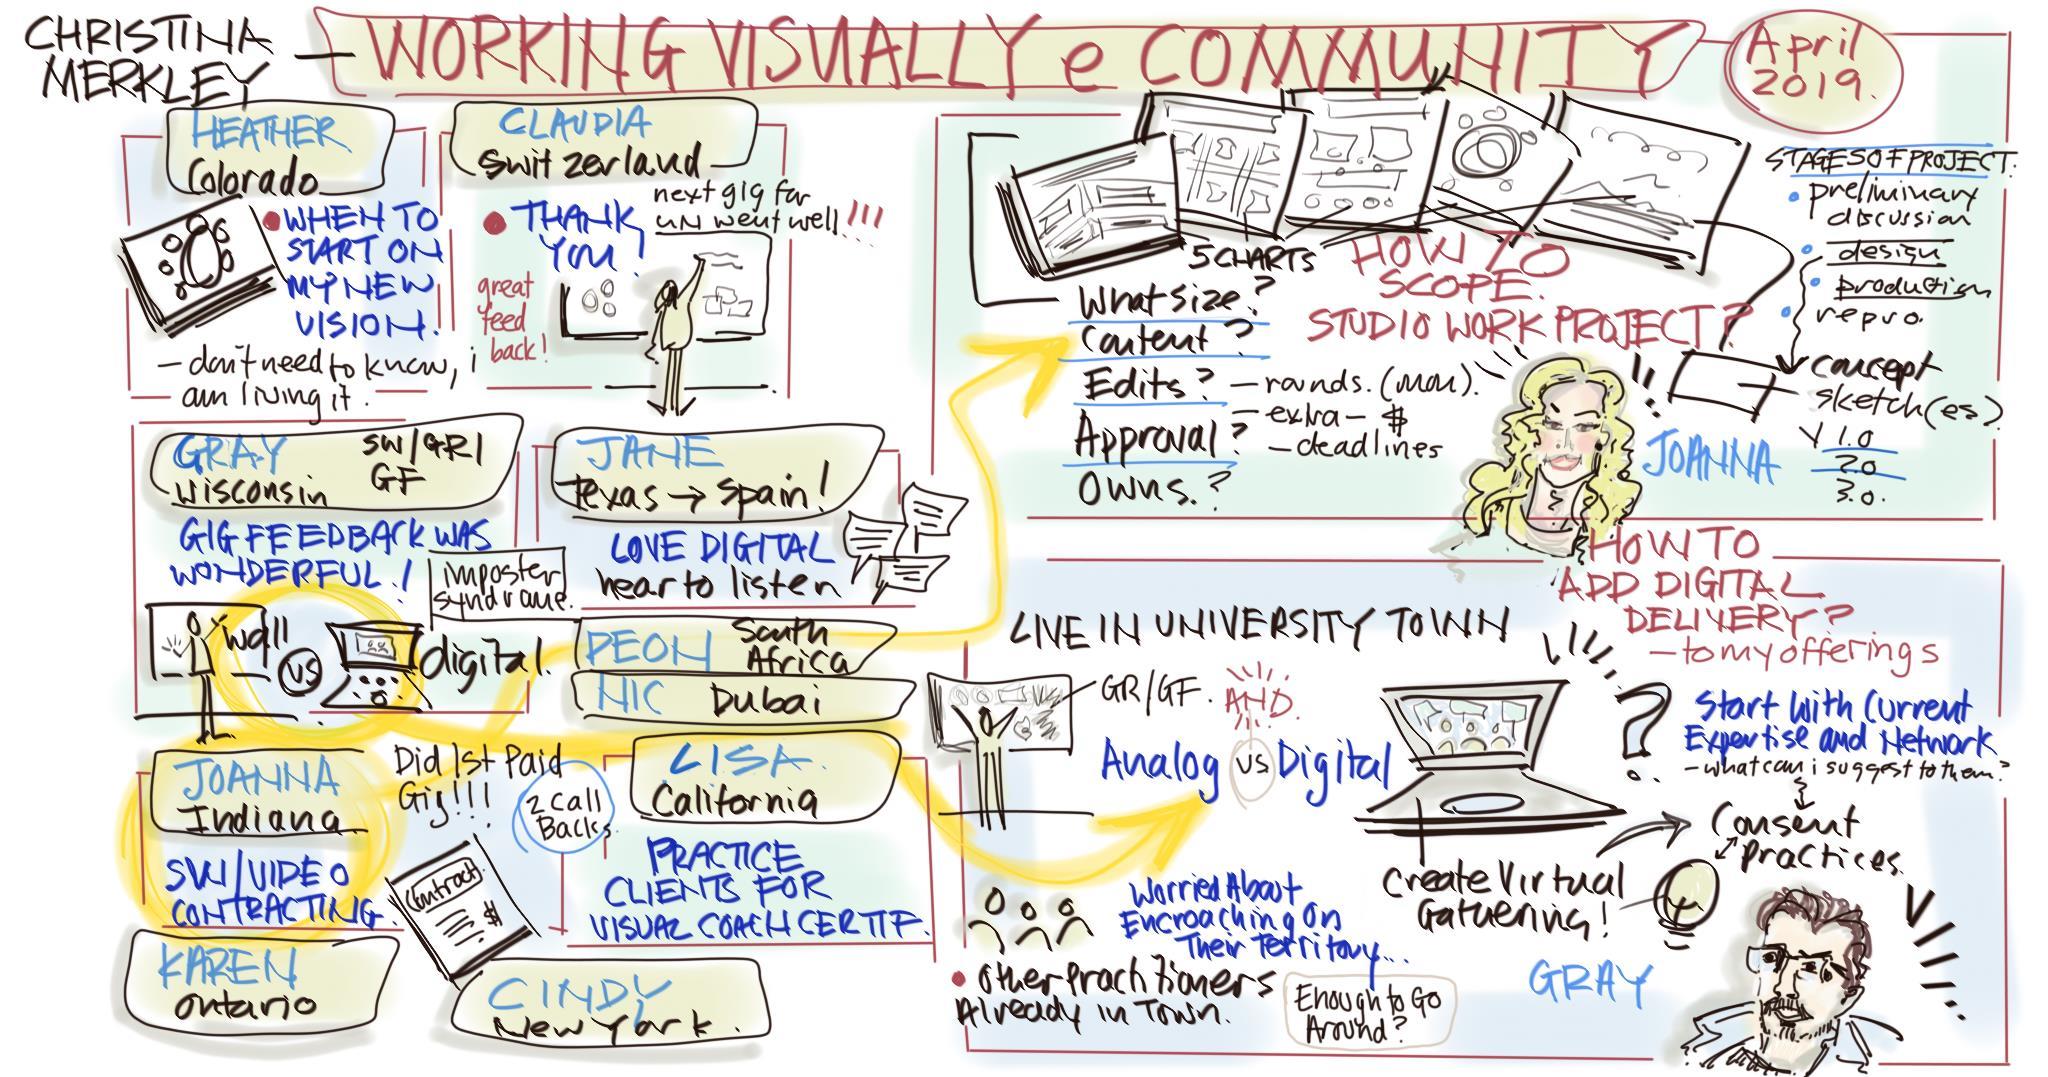 CHRISTINA
MERKLEY
WORKING VISUALLY e COMMUNITY
April
2019.
HEATHER
Colorado
WHEN TO
START ON
MY NEW
VISION.
- don't need to know, i
am living it.
CLAUDIA
Switzerland
THANK
YOU!
next gig for
UN went well!!!
great
feed
back!
GRAY
Wisconsin
SW/GRI
GF
GIG FEEDBACK WAS
WONDERFUL!
imposter
syndrome.
wall
VS
digital
JANE
Texas → Spain!
LOVE DIGITAL
hear to listen
PEON
South
Africa
NIC Dubai
JOANNA
Indiana
SW/VIDEO
CONTRACTING.
Did 1st Paid
Gig!!!
2 Call
Backs
Contract
$
LISA
California
PRACTICE
CLIENTS FOR
VISUAL COACH CERTIF.
KAREN
Ontario
CINDY
New York.
5 CHARTS
HOW TO
SCOPE.
STUDIO WORK PROJECT?
What size?
Content?
Edits? - rounds.
- extra - $
Approval? - deadlines
Owns.?
STAGES OF PROJECT.
preliminary
discussion
design
production
repro.
concept
sketch(es)
V 1.0
2.0
3.0.
JOANNA
HOW TO
ADD DIGITAL
DELIVERY?
- to my offerings
LIVE IN UNIVERSITY TOWN
GR/GF. AND
Analog VS Digital
?
Start with Current
Expertise and Network
- what can i suggest to them?
Consent
Practices.
Create Virtual
Gathering!
Worried About
Encroaching On
Their Territory...
Other Practitioners
Already in Town.
Enough to Go
Around?
GRAY